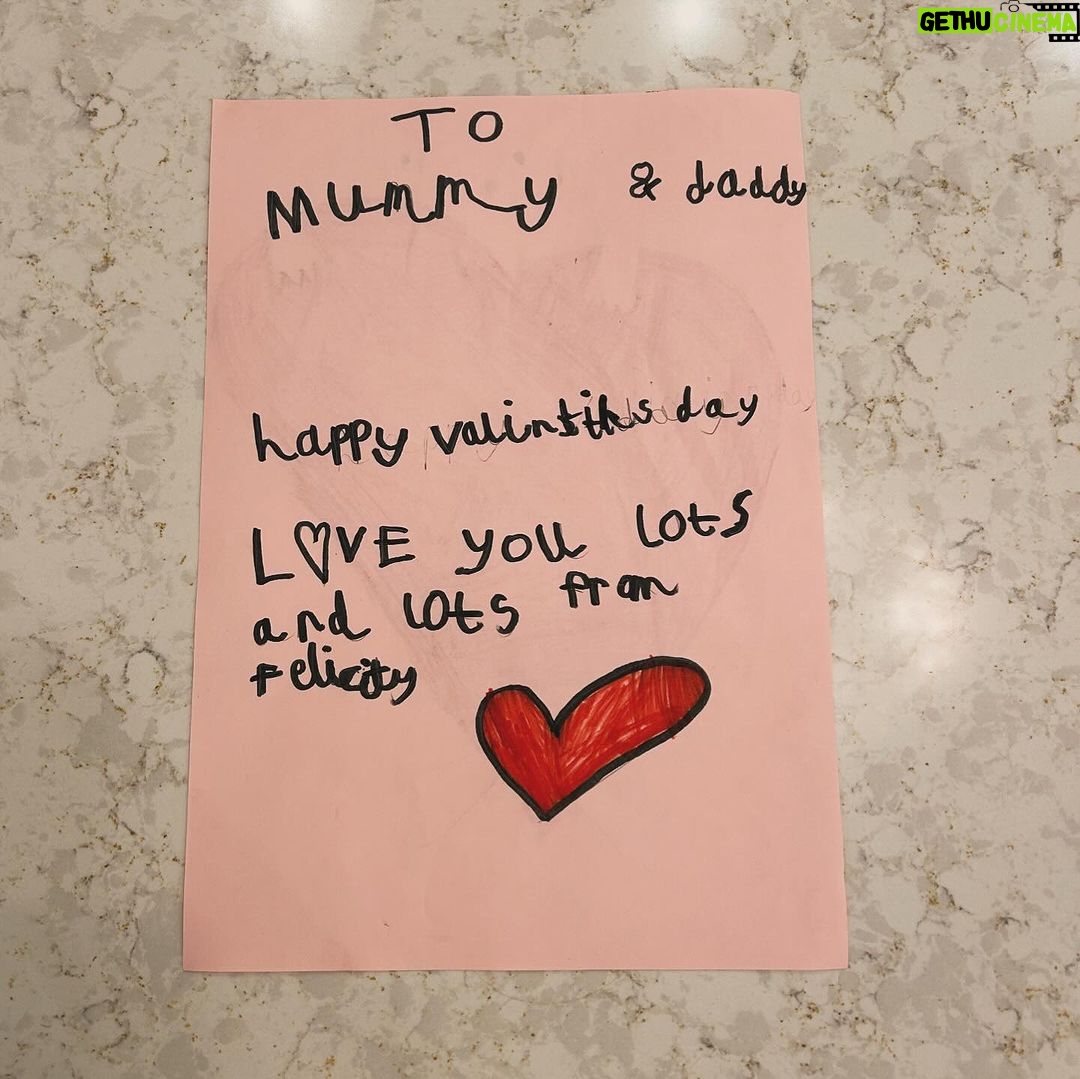 GETHUCINEMA
TO
Mummy & daddy
happy day
LOVE you lots
and lots from
felicity